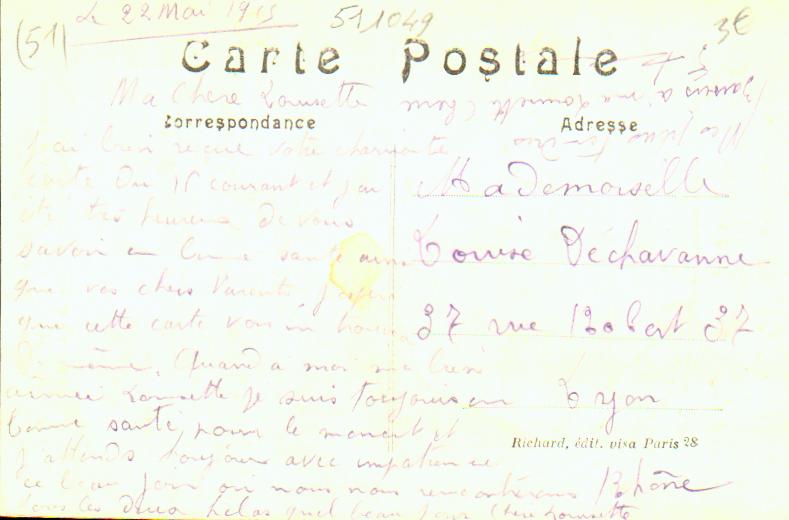 (51)
Le 22 Mai 1915
511049
3€
Carte Postale
Ma Chere Lousette
Correspondance
Adresse
j'ai bien reçue votre charmante
carte Du 15 courant et j'ai
été très heureux de vous
savoir en bonne santé ainsi
que vos chers Parents, j'espère
que cette carte vous en trouve
De même. Quand a moi ma bien
aimée Lousette je suis toujours en
bonne santé pour le moment et
j'attends toujours avec impatience
ce beau jour ou nous nous rencontrerons
tous les deux helas quel beau jour Chère Lousette
Mademoiselle
Louise Déchavanne
37 rue Bobert 37
Lyon
Richard, édit. visa Paris 28
Rhône